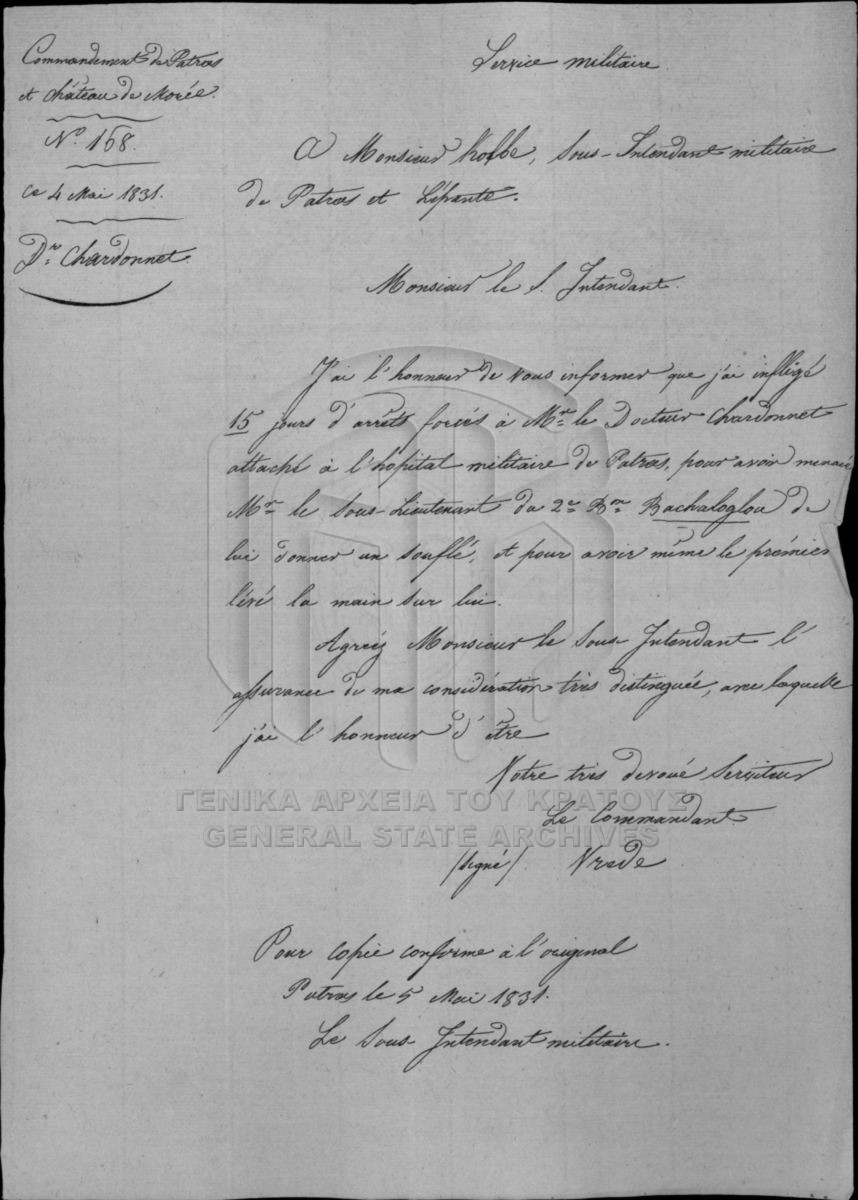 Commandement de Patras
et château de Morée.
N.° 168.
ce 4 Mai 1831.
D.re Chardonnet.
Service militaire.
A Monsieur Kolbe, Sous-Intendant militaire
de Patras et Lépante.
Monsieur le S. Intendant.
J'ai l'honneur de vous informer que j'ai infligé
15 jours d'arrêts forcés à M.r le Docteur Chardonnet
attaché à l'hopital militaire de Patras, pour avoir menacé
M.r le Sous-Lieutenant du 2.e B.on Bachaloglou de
lui donner un souflé, et pour avoir même le prémier
lévé la main sur lui.
Agreéz Monsieur le Sous-Intendant l'
assurance de ma considération très distinguée, avec laquelle
j'ai l'honneur d'être
Votre très devoué Serviteur
Le Commandant
/signé/. Vrede
ΓΕΝΙΚΑ ΑΡΧΕΙΑ ΤΟΥ ΚΡΑΤΟΥΣ
GENERAL STATE ARCHIVES
Pour copie conforme à l'original
Patras le 5 Mai 1831.
Le Sous-Intendant militaire.